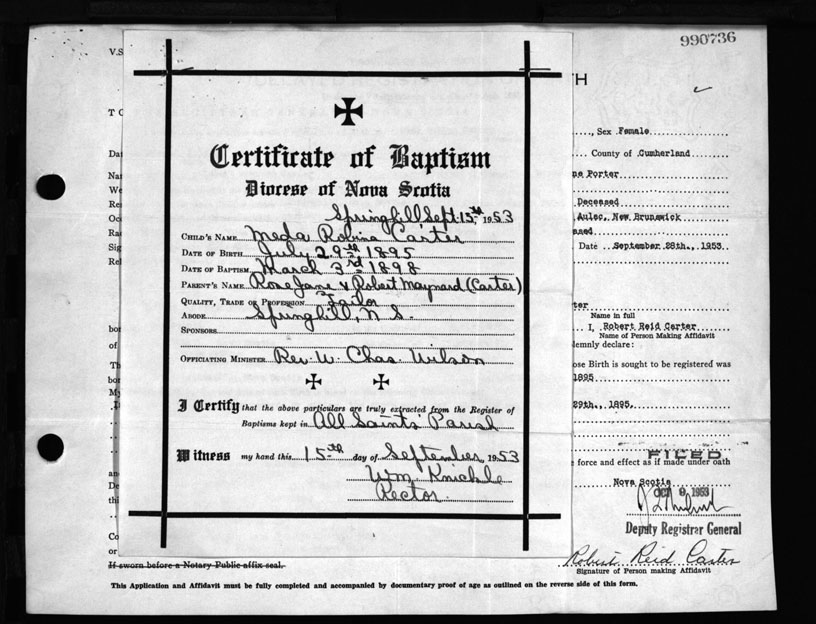 990736
V.S
TH
Certificate of Baptism
Diocese of Nova Scotia
Springhill Sept. 15th 1953
Child's Name Meda Robina Carter
Date of Birth July 29th 1895
Date of Baptism March 3rd 1898
Parent's Name Rose Jane & Robert Maynard (Carter)
Quality, Trade or Profession Tailor
Abode Springhill, N.S.
Sponsors
Officiating Minister Rev. W. Chas. Wilson
I Certify that the above particulars are truly extracted from the Register of
Baptisms kept in All Saints' Parish
Witness my hand this 15th day of September 1953
Wm Knickle
Rector
T O
Dat
Nam
We
Res
Occ
Rac
Sig
Rel
bor
of
Th
bor
My
and
De
this
Co
or
, Sex Female
County of Cumberland
ne Porter
Deceased
Aulac, New Brunswick
Date September 28th., 1953
rter
Name in full
I, Robert Reid Carter
Name of Person Making Affidavit
lemnly declare:
ose Birth is sought to be registered was
1895
29th., 1895.
FILED
force and effect as if made under oath
Nova Scotia
OCT 9 1953
Deputy Registrar General
Robert Reid Carter
Signature of Person making Affidavit
If sworn before a Notary Public affix seal.
This Application and Affidavit must be fully completed and accompanied by documentary proof of age as outlined on the reverse side of this form.